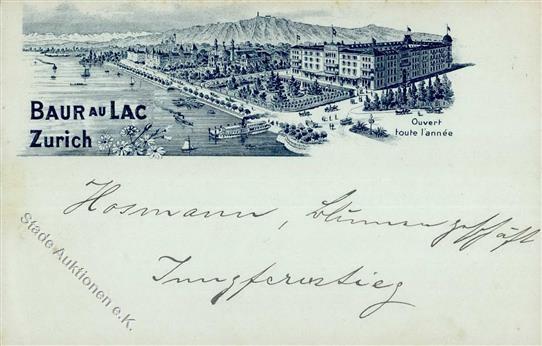 BAUR AU LAC
Zurich
Ouvert
toute l'année
Hosmann, Blumengeschäft
Jungfernstieg
Stade Auktionen e.K.